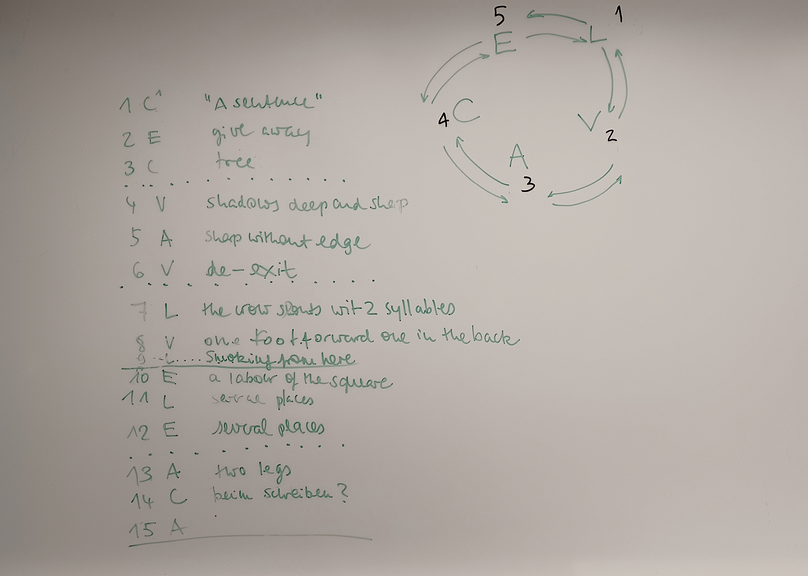 5
1
E
L
4 C
V
2
A
3
1 C "A sentence"
2 E give away
3 C tree
4 V shadows deep and shop
5 A shop without edge
6 V de-exit
7 L the crow shouts wit 2 syllables
8 V one foot forward one in the back
9 L Smoking from here
10 E a labour of the square
11 L several places
12 E several places
13 A two legs
14 C beim schreiben?
15 A